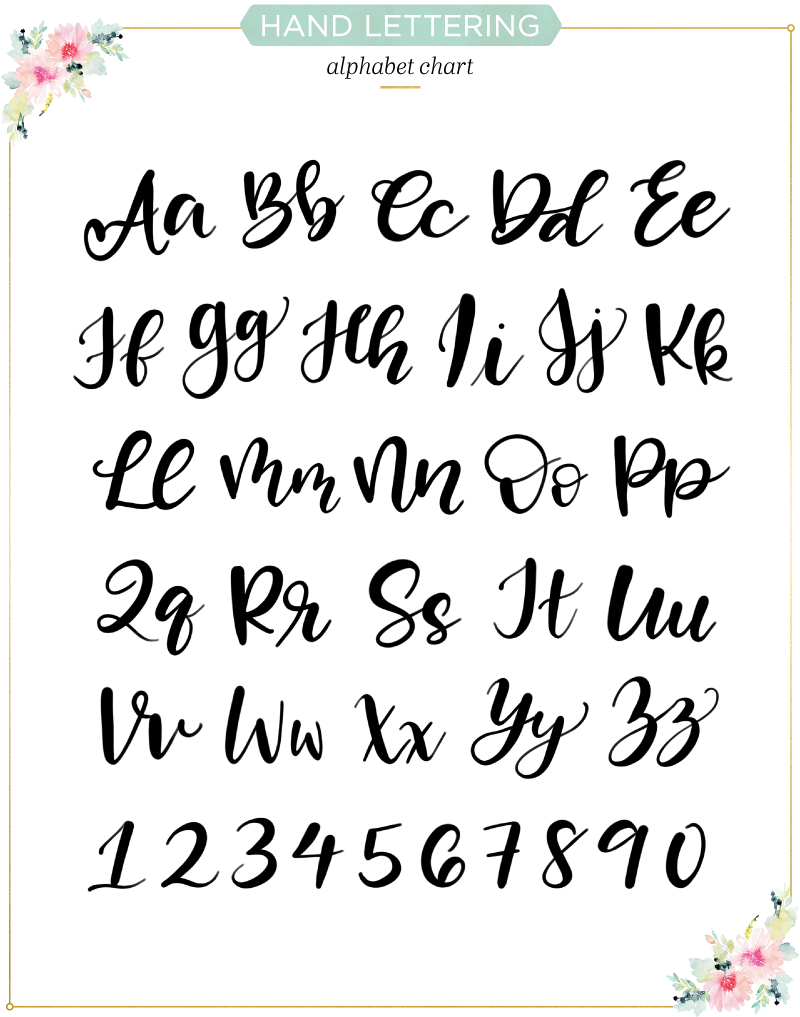 HAND LETTERING
alphabet chart
Aa Bb Cc Dd Ee
Ff Gg Hh Ii Jj Kk
Ll Mm Nn Oo Pp
Qq Rr Ss Tt Uu
Vv Ww Xx Yy Zz
1 2 3 4 5 6 7 8 9 0